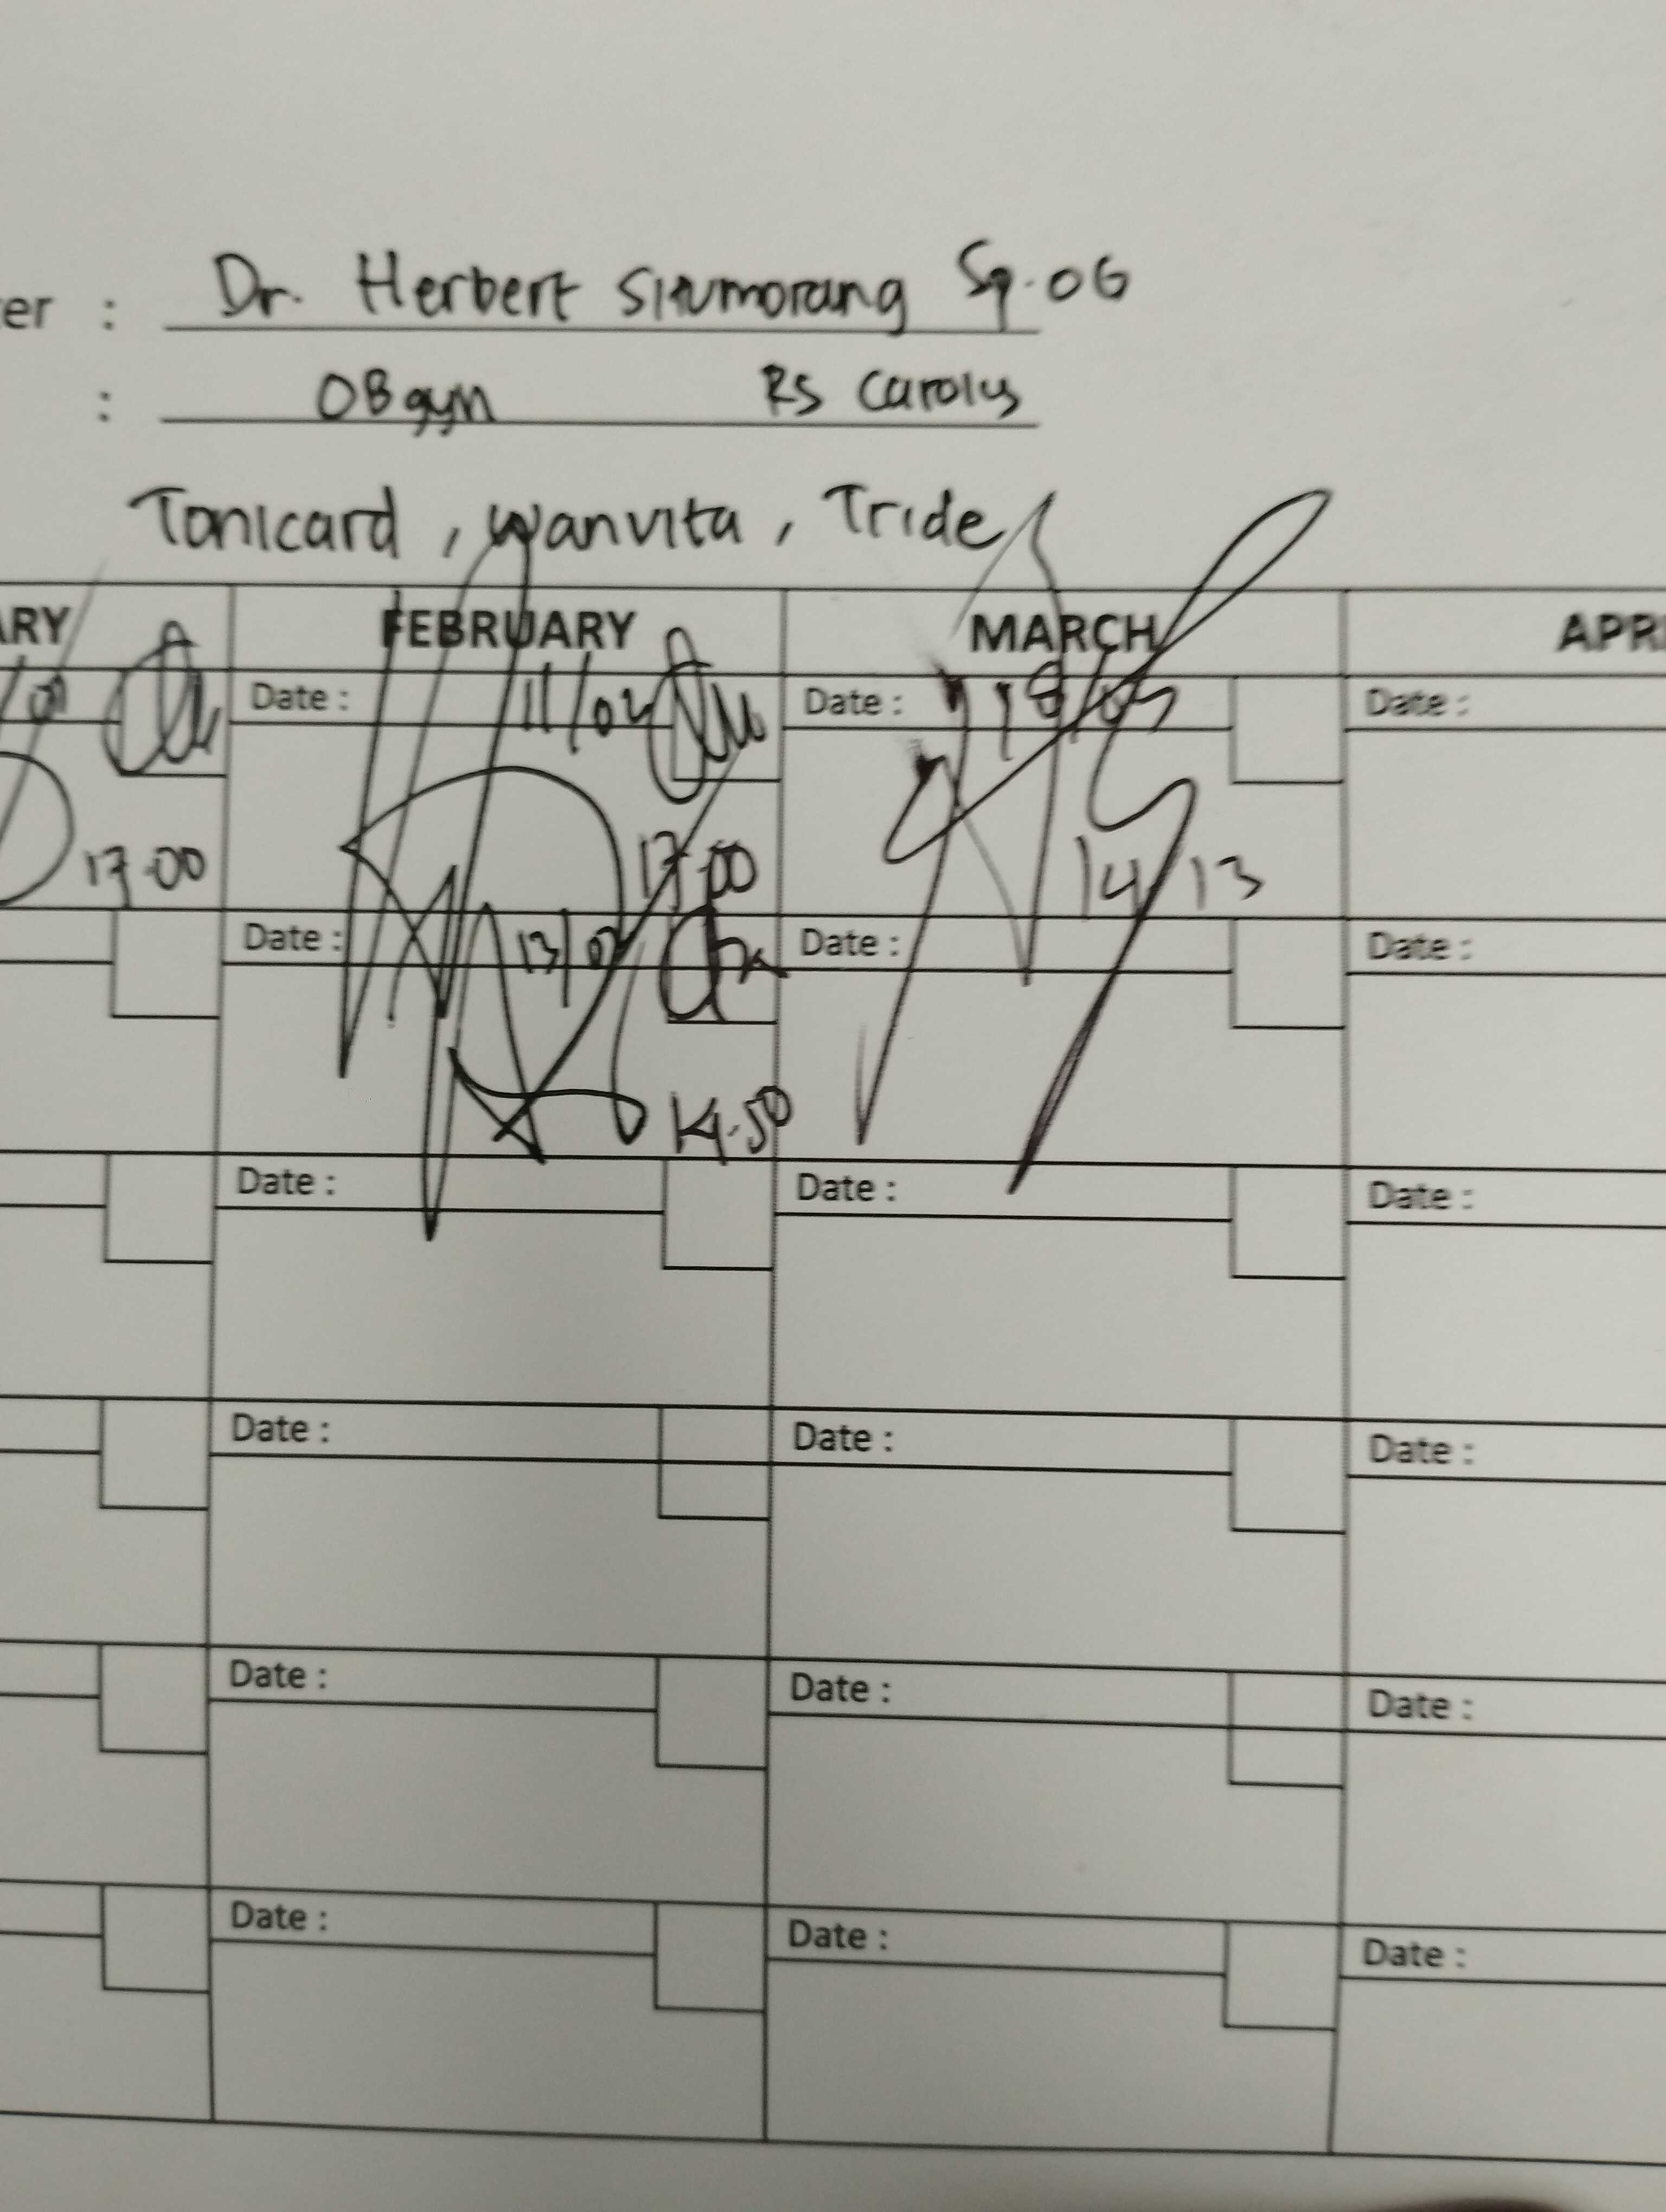 er : Dr. Herbert Situmorang Sp.OG
: OBgyn RS Carolus
Tonicard, Wanvita, Tride
ARY FEBRUARY MARCH APRI
Date : 11/02 Date : 18/03 Date :
17.00 17.00 14/13
Date : 13/02 Date : Date :
14.50
Date : Date : Date :
Date : Date : Date :
Date : Date : Date :
Date : Date : Date :